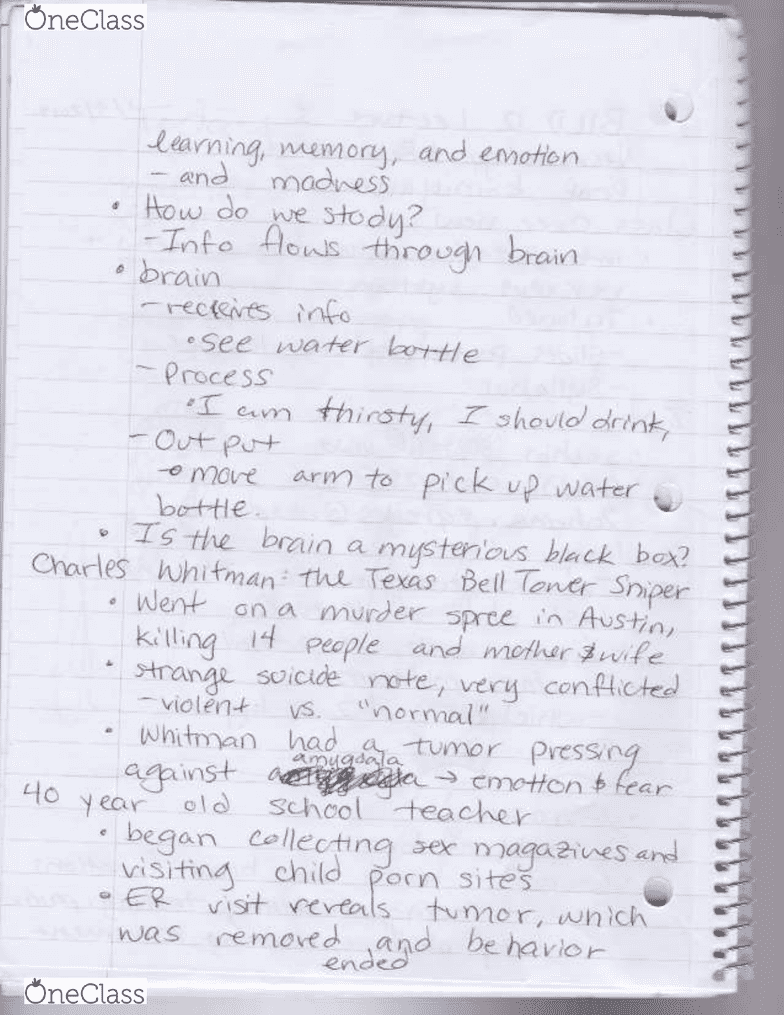 OneClass
learning, memory, and emotion
- and madness
• How do we study?
- Info flows through brain
• brain
- receives info
• see water bottle
- Process
• I am thirsty, I should drink,
- Out put
• move arm to pick up water
bottle
• Is the brain a mysterious black box?
Charles Whitman: the Texas Bell Tower Sniper
• Went on a murder spree in Austin,
killing 14 people and mother & wife
• strange suicide note, very conflicted
- violent vs. "normal"
• Whitman had a tumor pressing
amygdala
against → emotion & fear
40 year old school teacher
• began collecting sex magazines and
visiting child porn sites
• ER visit reveals tumor, which
was removed and behavior
ended
OneClass